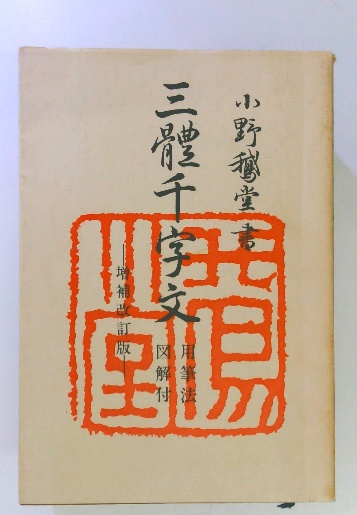 小野鵞堂書
三體千字文
用筆法
図解付
—増補改訂版—